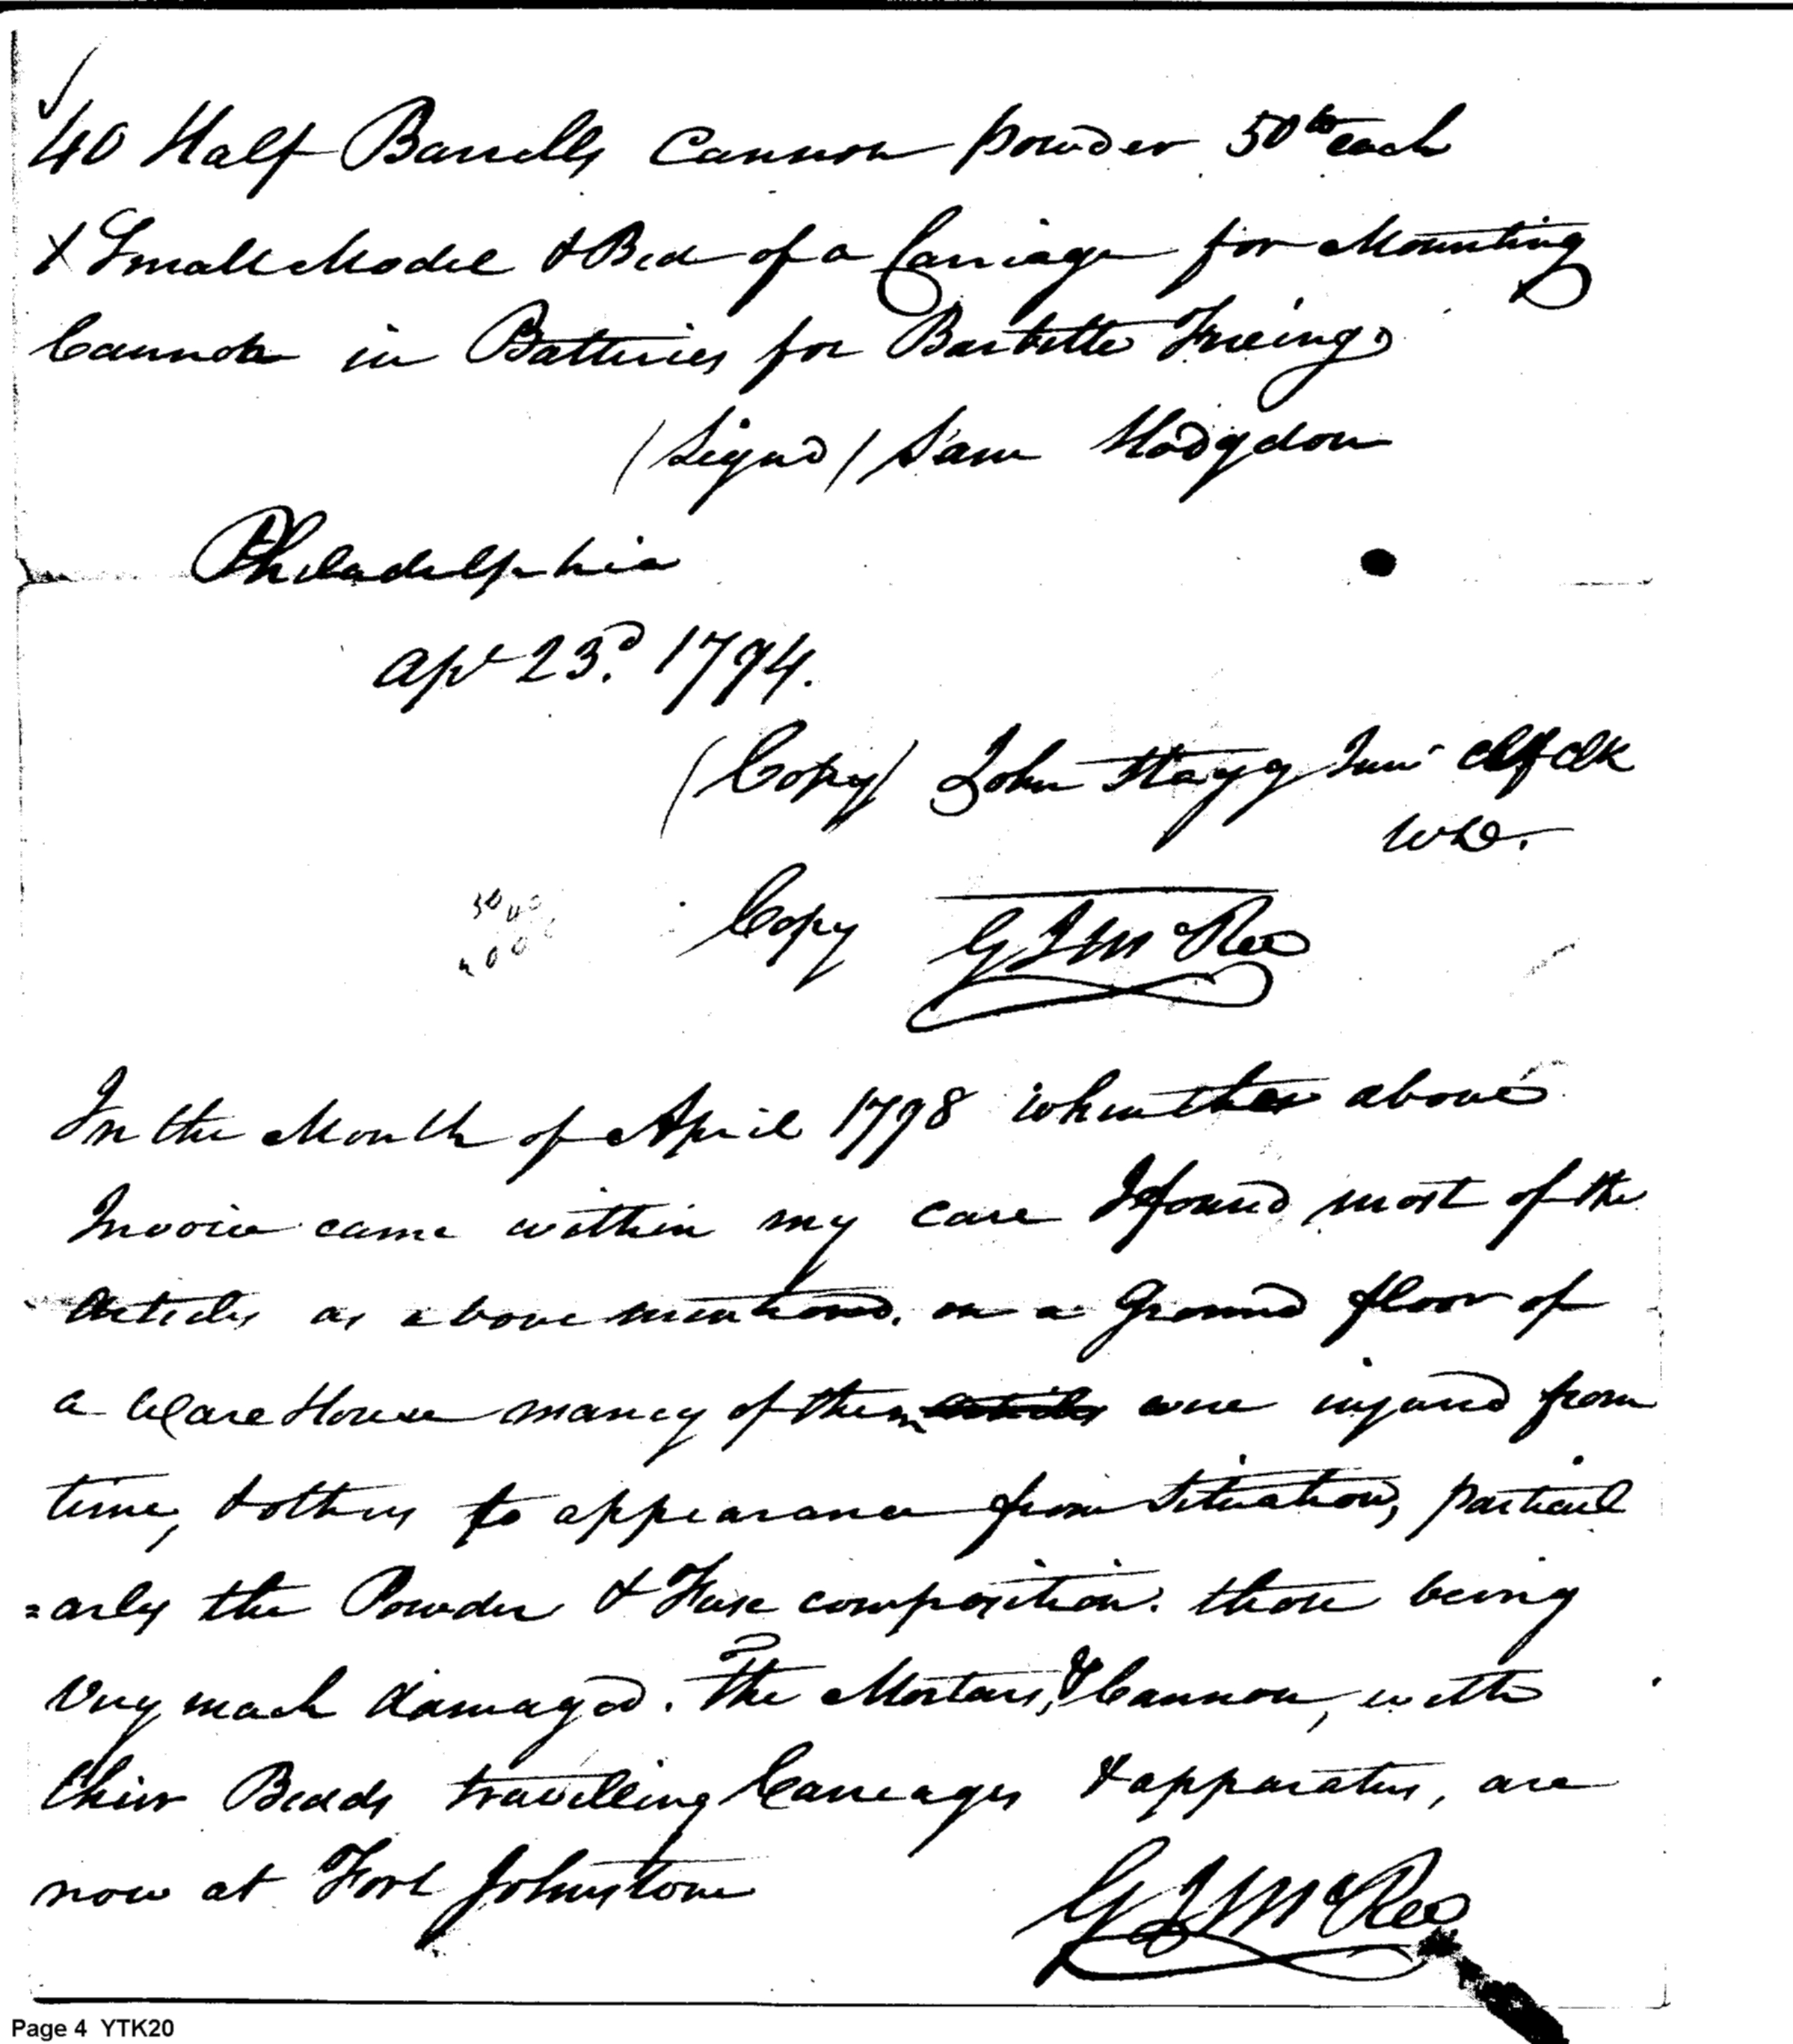 40 Half Barrells Cannon powder 50 lb each
X Small Model & Bed of a Carriage for Mounting
Cannon in Batteries for Barbette Fireing
(Signd) Sam Hodgdon
Philadelphia
apr 23d. 1794.
(Copy) John Stagg Junr Chf Clk
WD.
Copy G J McRee
In the Month of April 1798 when the above
Invoice came within my care I found most of the
Articles as above mentiond, on a Ground floor of
a Ware House many of them articles were injured from
time, & others to appearance from Situation, particul
=arly the Powder & Fuse composition. those being
Very much damaged. The Mortars, & Cannon, with
thier Bedds travelling Carreages & apparatus, are
now at Fort Johnstone
G J McRee
Page 4 YTK20